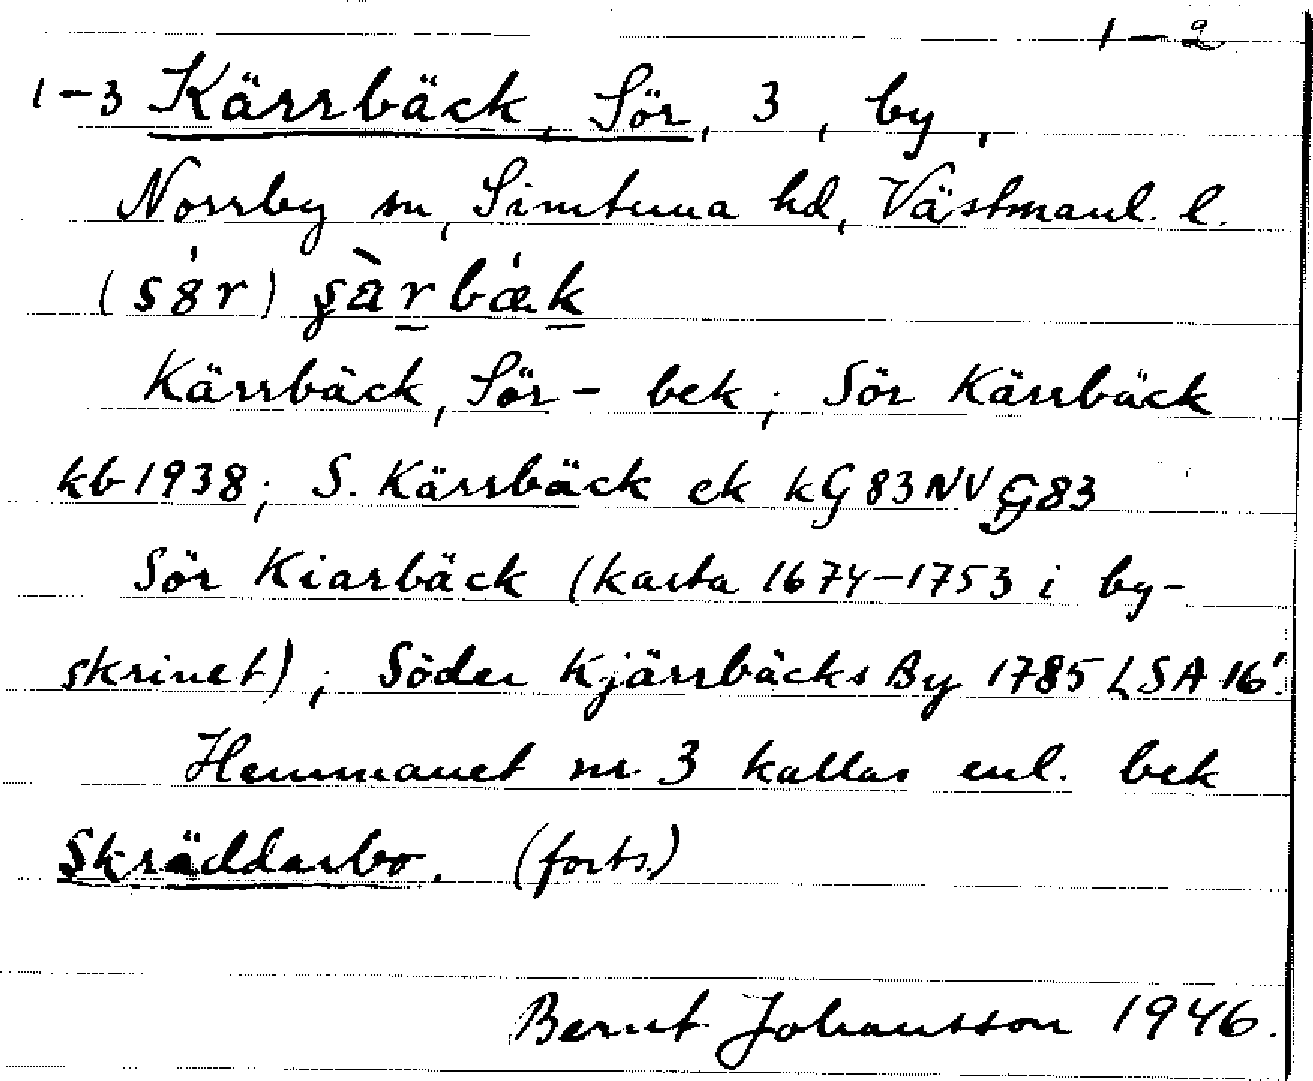 1-2
1-3 Kärrbäck, Sör, 3, by,
Norrby sn, Simtuna hd, Västmanl. l.
(sör) șàrbäk
Kärrbäck, Sör- bek; Sör Kärrbäck
kb 1938; S. Kärrbäck ek kG83NVG83
Sör Kiarbäck (karta 1674-1753 i by-
skrinet); Söder Kjärrbäcks By 1785 LSA 16.
Hemmanet nr 3 kallas enl. bek
Skräddarbo. (forts.)
Bernt Johansson 1946.